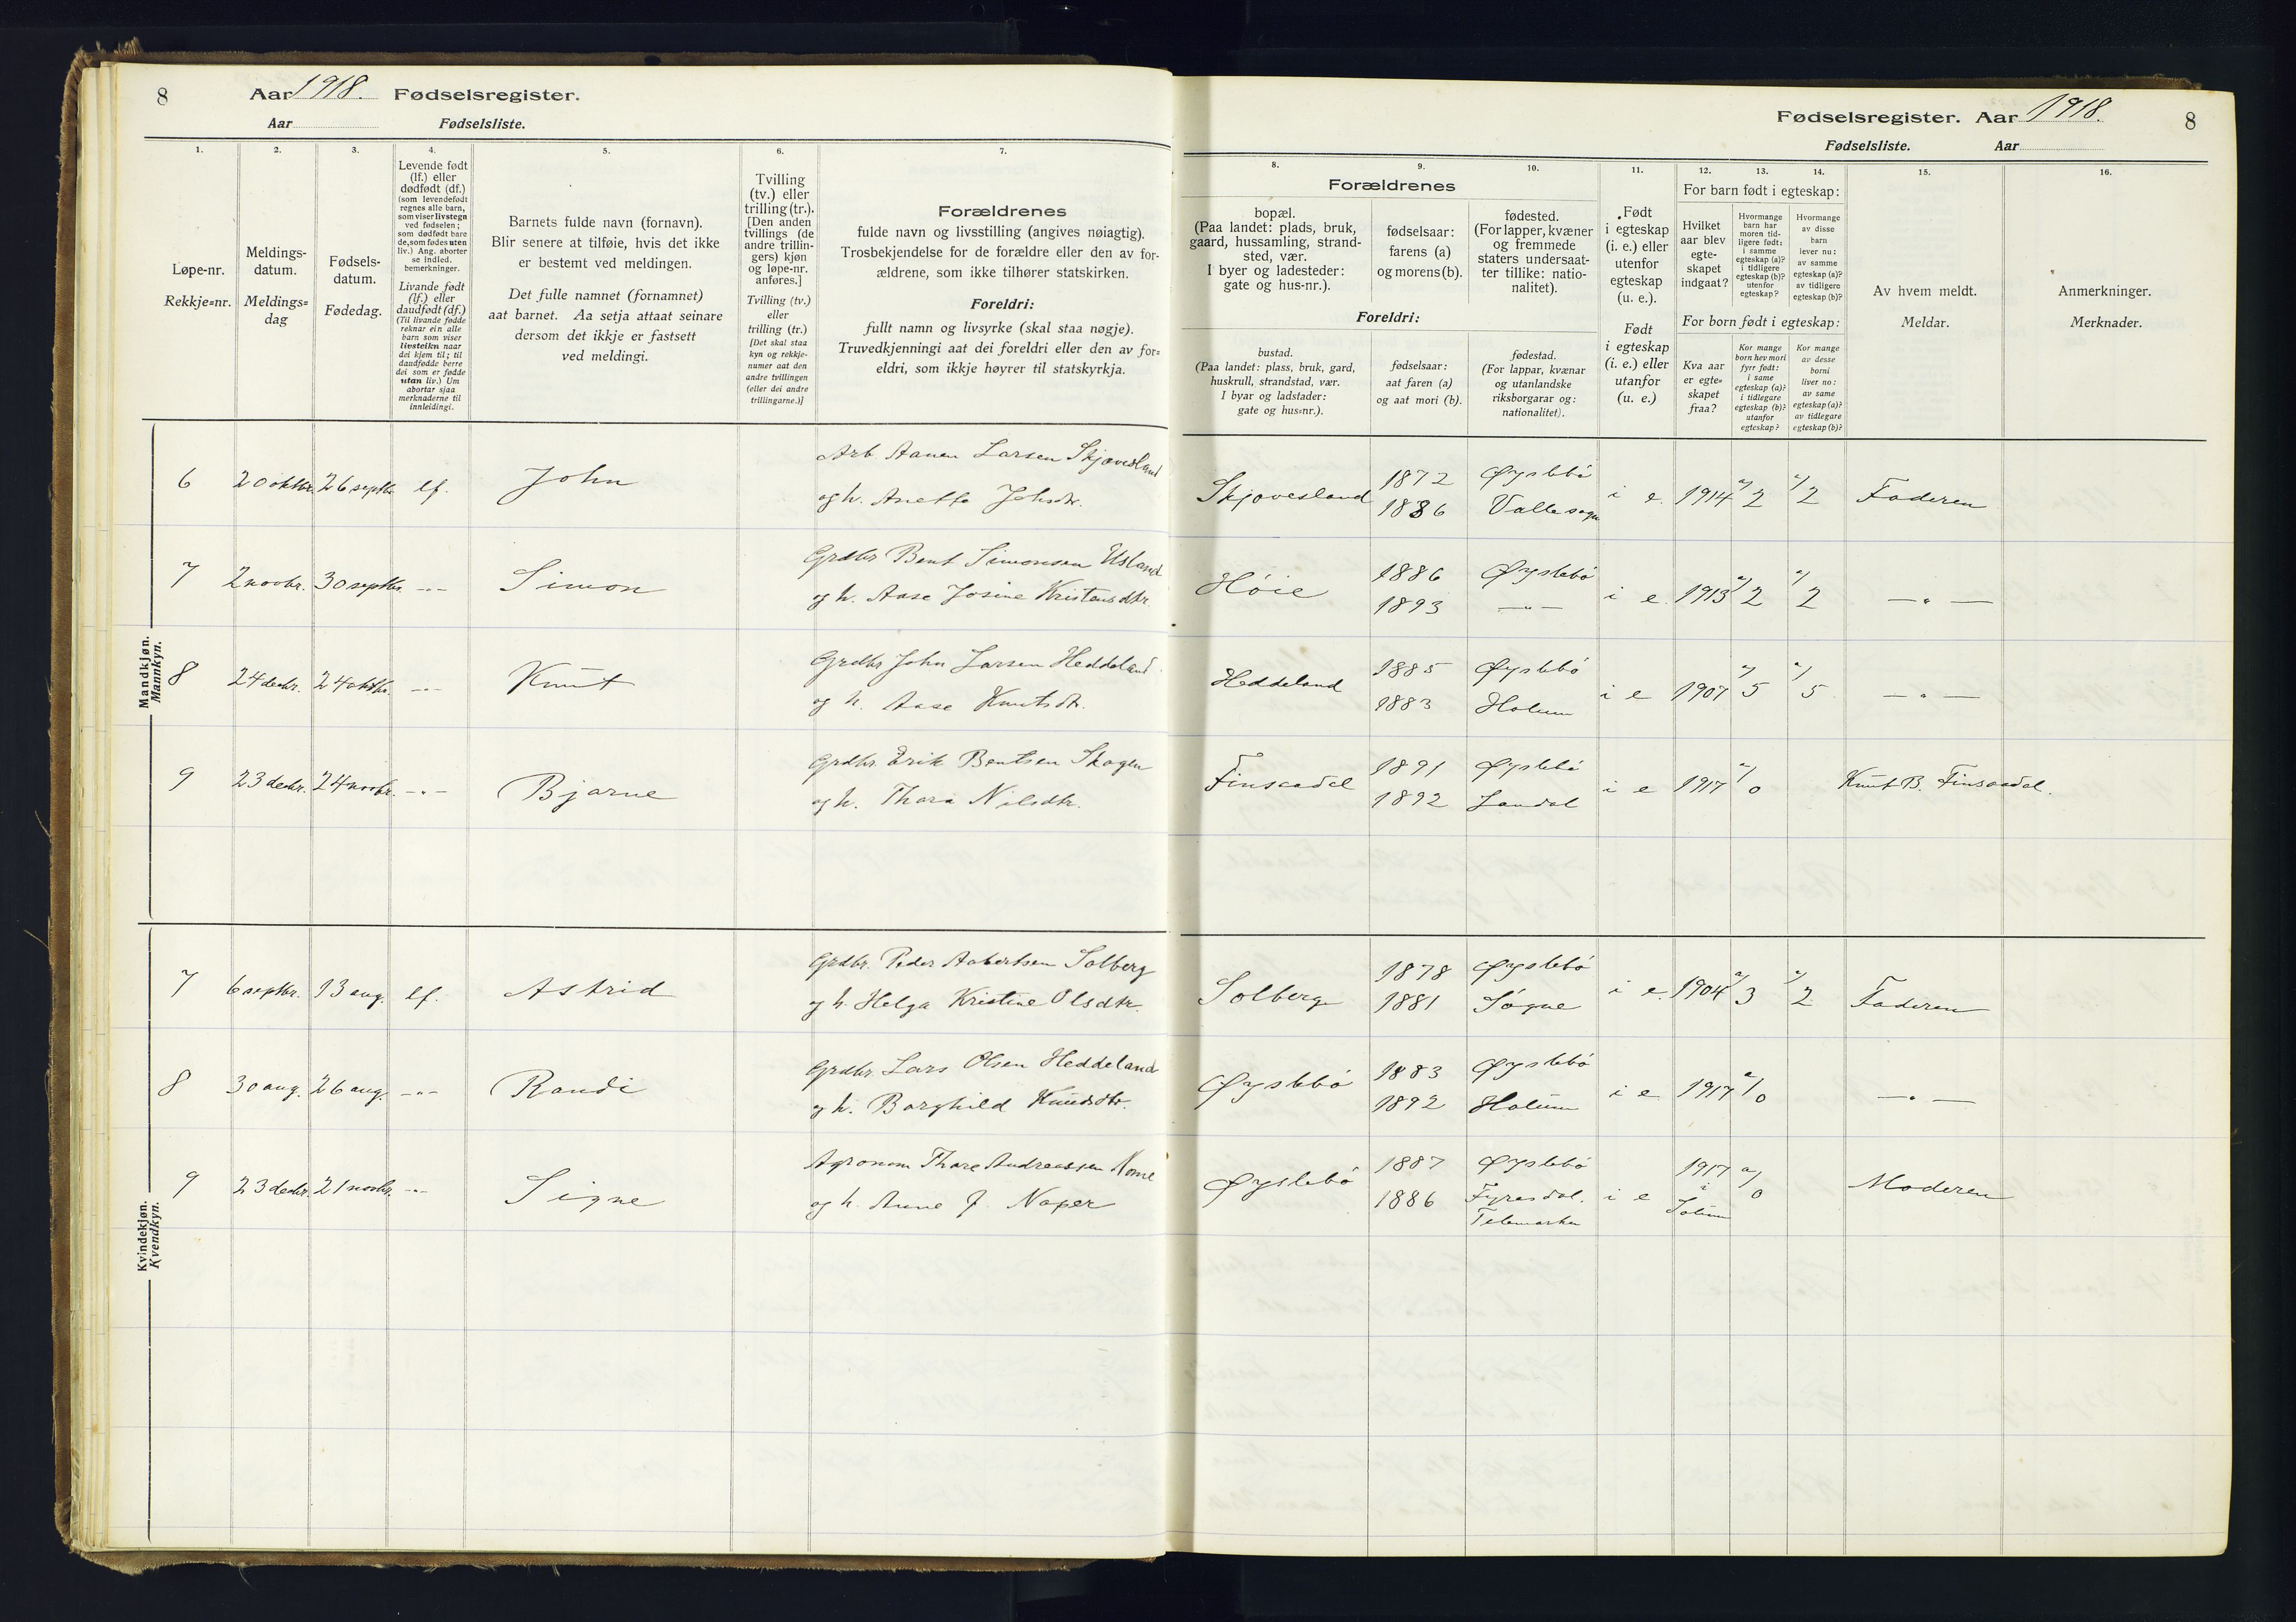 8 Aar 1918. Fødselsregister.
Aar Fødselsliste.
1. 2. 3. 4. 5. 6. 7.
Løpe-nr.
Rekkje=nr.
Meldings-
datum.
Meldings=
dag
Fødsels-
datum.
Fødedag.
Levende født
(lf.) eller
dødfødt (df.)
(som levendefødt
regnes alle barn,
som viser livstegn
ved fødselen;
som dødfødt bare
de, som fødes uten
liv.) Ang. aborter
se indled.
bemerkninger.
Livande født
(lf.) eller
daudfødt (df.)
(Til livande fødde
reknar ein alle
barn som viser
livsteikn naar
dei kjem til; til
daudfødde berre
dei som er fødde
utan liv.) Um
abortar sjaa
merknaderne til
innleidingi.
Barnets fulde navn (fornavn).
Blir senere at tilføie, hvis det ikke
er bestemt ved meldingen.
Det fulle namnet (fornamnet)
aat barnet. Aa setja attaat seinare
dersom det ikkje er fastsett
ved meldingi.
Tvilling
(tv.) eller
trilling (tr.).
[Den anden
tvillings (de
andre trillin-
gers) kjøn
og løpe-nr.
anføres.]
Tvilling (tv.)
eller
trilling (tr.)
[Det skal staa
kyn og rekkje-
numer aat den
andre tvillingen
(eller dei andre
trillingarne.)]
Forældrenes
fulde navn og livsstilling (angives nøiagtig).
Trosbekjendelse for de forældre eller den av for-
ældrene, som ikke tilhører statskirken.
Foreldri:
fullt namn og livsyrke (skal staa nøgje).
Truvedkjenningi aat dei foreldri eller den av for=
eldri, som ikkje høyrer til statskyrkja.
Mandkjøn.
Mannkyn.
6 20 oktbr. 26 septbr. lf. John Arb. Aanen Larsen Skjævesland
og h. Anetta Johsdtr.
7 2 novbr. 30 septbr. -"- Simon Grdbr Bent Simonsen Usland
og h. Aase Josine Kristensdtr.
8 24 decbr. 24 oktbr. -"- Knut Grdbr John Larsen Heddeland
og h. Aase Knutsdtr.
9 23 decbr. 24 novbr. -"- Bjarne Grdbr. Erik Bentsen Skogen
og h. Thora Nilsdtr.
Kvindekjøn.
Kvendkyn.
7 6 septbr. 13 aug. lf. Astrid Grdbr. Peder Aabertsen Solberg
og h. Helga Kristine Olsdtr.
8 30 aug. 26 aug. -"- Randi Grdbr Lars Olsen Heddeland
og h. Borghild Knudsdtr.
9 23 decbr. 21 novbr. -"- Signe Agronom Thore Andreassen Nome
og h. Anne J. Naper
Fødselsregister. Aar 1918. 8
Fødselsliste. Aar
8. 9. 10. 11. 12. 13. 14. 15. 16.
Forældrenes
bopæl.
(Paa landet: plads, bruk,
gaard, hussamling, strand-
sted, vær.
I byer og ladesteder:
gate og hus-nr.).
fødselsaar:
farens (a)
og morens (b).
fødested.
(For lapper, kvæner
og fremmede
staters undersaat-
ter tillike: natio-
nalitet).
Foreldri:
bustad.
(Paa landet: plass, bruk, gard,
huskrull, strandstad, vær.
I byar og ladstader:
gate og hus=nr.).
fødselsaar:
aat faren (a)
og aat mori (b).
fødestad.
(For lappar, kvænar
og utanlandske
riksborgarar og:
nationalitet).
Født
i egteskap
(i. e.) eller
utenfor
egteskap
(u. e.).
Født
i egteskap
(i. e.) eller
utanfor
(u. e.)
For barn født i egteskap:
Hvilket
aar blev
egte-
skapet
indgaat?
Hvormange
barn har
moren tid-
ligere født:
i samme
egteskap (a)?
i tidligere
egteskap (b)?
utenfor
egteskap?
Hvormange
av disse
barn
lever nu:
av samme
egteskap (a)?
av tidligere
egteskap (b)?
For born født i egteskap:
Kva aar
er egte=
skapet
fraa?
Kor mange
born hev mori
fyrr født:
i same
egteskap (a)?
i tidlegare
egteskap (b)?
utanfor
egteskap?
Kor mange
av desse
borni
liver no:
av same
egteskap (a)?
av tidlegare
egteskap (b)?
Av hvem meldt.
Meldar.
Anmerkninger.
Merknader.
Skjævesland 1872 Øyslebø i e. 1914 a/2 a/2 Faderen
1886 Valle sogn
Høie 1886 Øyslebø i e. 1913 a/2 a/2 -"-
1893 -"-
Heddeland 1885 Øyslebø i e 1907 a/5 a/5 -"-
1883 Holum
Finsaadal 1891 Øyslebø i e 1917 a/0 Knut B. Finsaadal.
1892 Laudal
Solberg 1878 Øyslebø i e. 1904 a/3 a/2 Faderen
1881 Søgne
Øyslebø 1883 Øyslebø i e 1917 a/0 -"-
1892 Holum
Øyslebø 1887 Øyslebø i e 1917 a/0 Moderen
1886 Fyresdal, i
Telemarken Solum